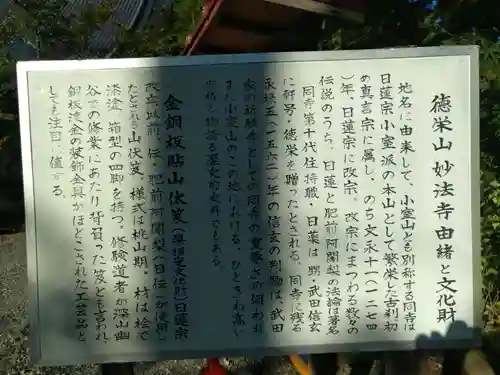 徳栄山 妙法寺 由緒と文化財
地名に由来して、小室山とも別称する同寺は
日蓮宗小室派の本山として繁栄した古刹。初
め真言宗に属し、のち文永十一(一二七四
)年、日蓮宗に改宗。改宗にまつわる数々の
伝説のうち、日蓮と肥前阿闍梨の法論は著名
同寺第十代住持職、日薬は甥・武田信玄
に軒号・徳栄を贈ったとされる。同寺に残る
永禄五(一五六二)年の信玄の判物は、武田
家の祈願寺としての同寺の重要さが伺われ
また小室山のこの地における、ひときわ高い
寺格を物語る歴史的史料でもある。
金銅板貼山伏笈(県指定文化財)日蓮宗
改宗以前、伝、肥前阿闍梨(日伝)が使用し
たとされる山伏笈。様式は桃山期。材は桧で
漆塗、箱型の四脚を持つ。修験道者が深山幽
谷での修業にあたり背負った笈とも言われ
銅板渡金の装飾金具がほどこされた工芸品と
しても注目に値する。